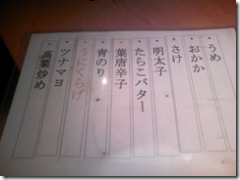 うめ
おかか
さけ
明太子
たらこバター
葉唐辛子
青のり
うにくらげ
ツナマヨ
高菜炒め